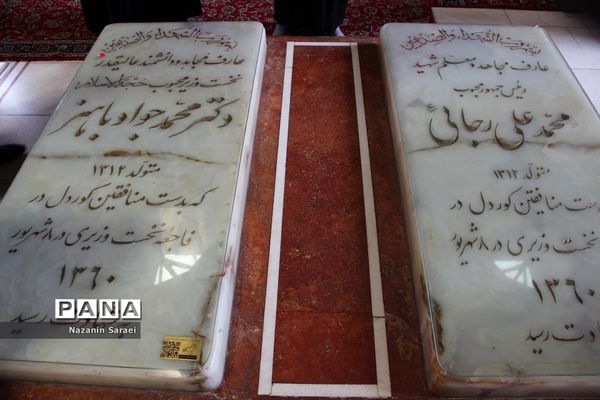 عارف مجاهد و دانشمند عالیقدر
نخست وزیر محبوب
دکتر محمد جواد باهنر
متولد ۱۳۱۲
که بدست منافقین کوردل در
فاجعه نخست وزیری در ۸ شهریور
۱۳۶۰
رسید
PANA
Nazanin Saraei
عارف مجاهد معلم شهید
رئیس جمهور محبوب
محمد علی رجائی
متولد ۱۳۱۲
بدست منافقین کوردل در
نخست وزیری در ۸ شهریور
۱۳۶۰
رسید